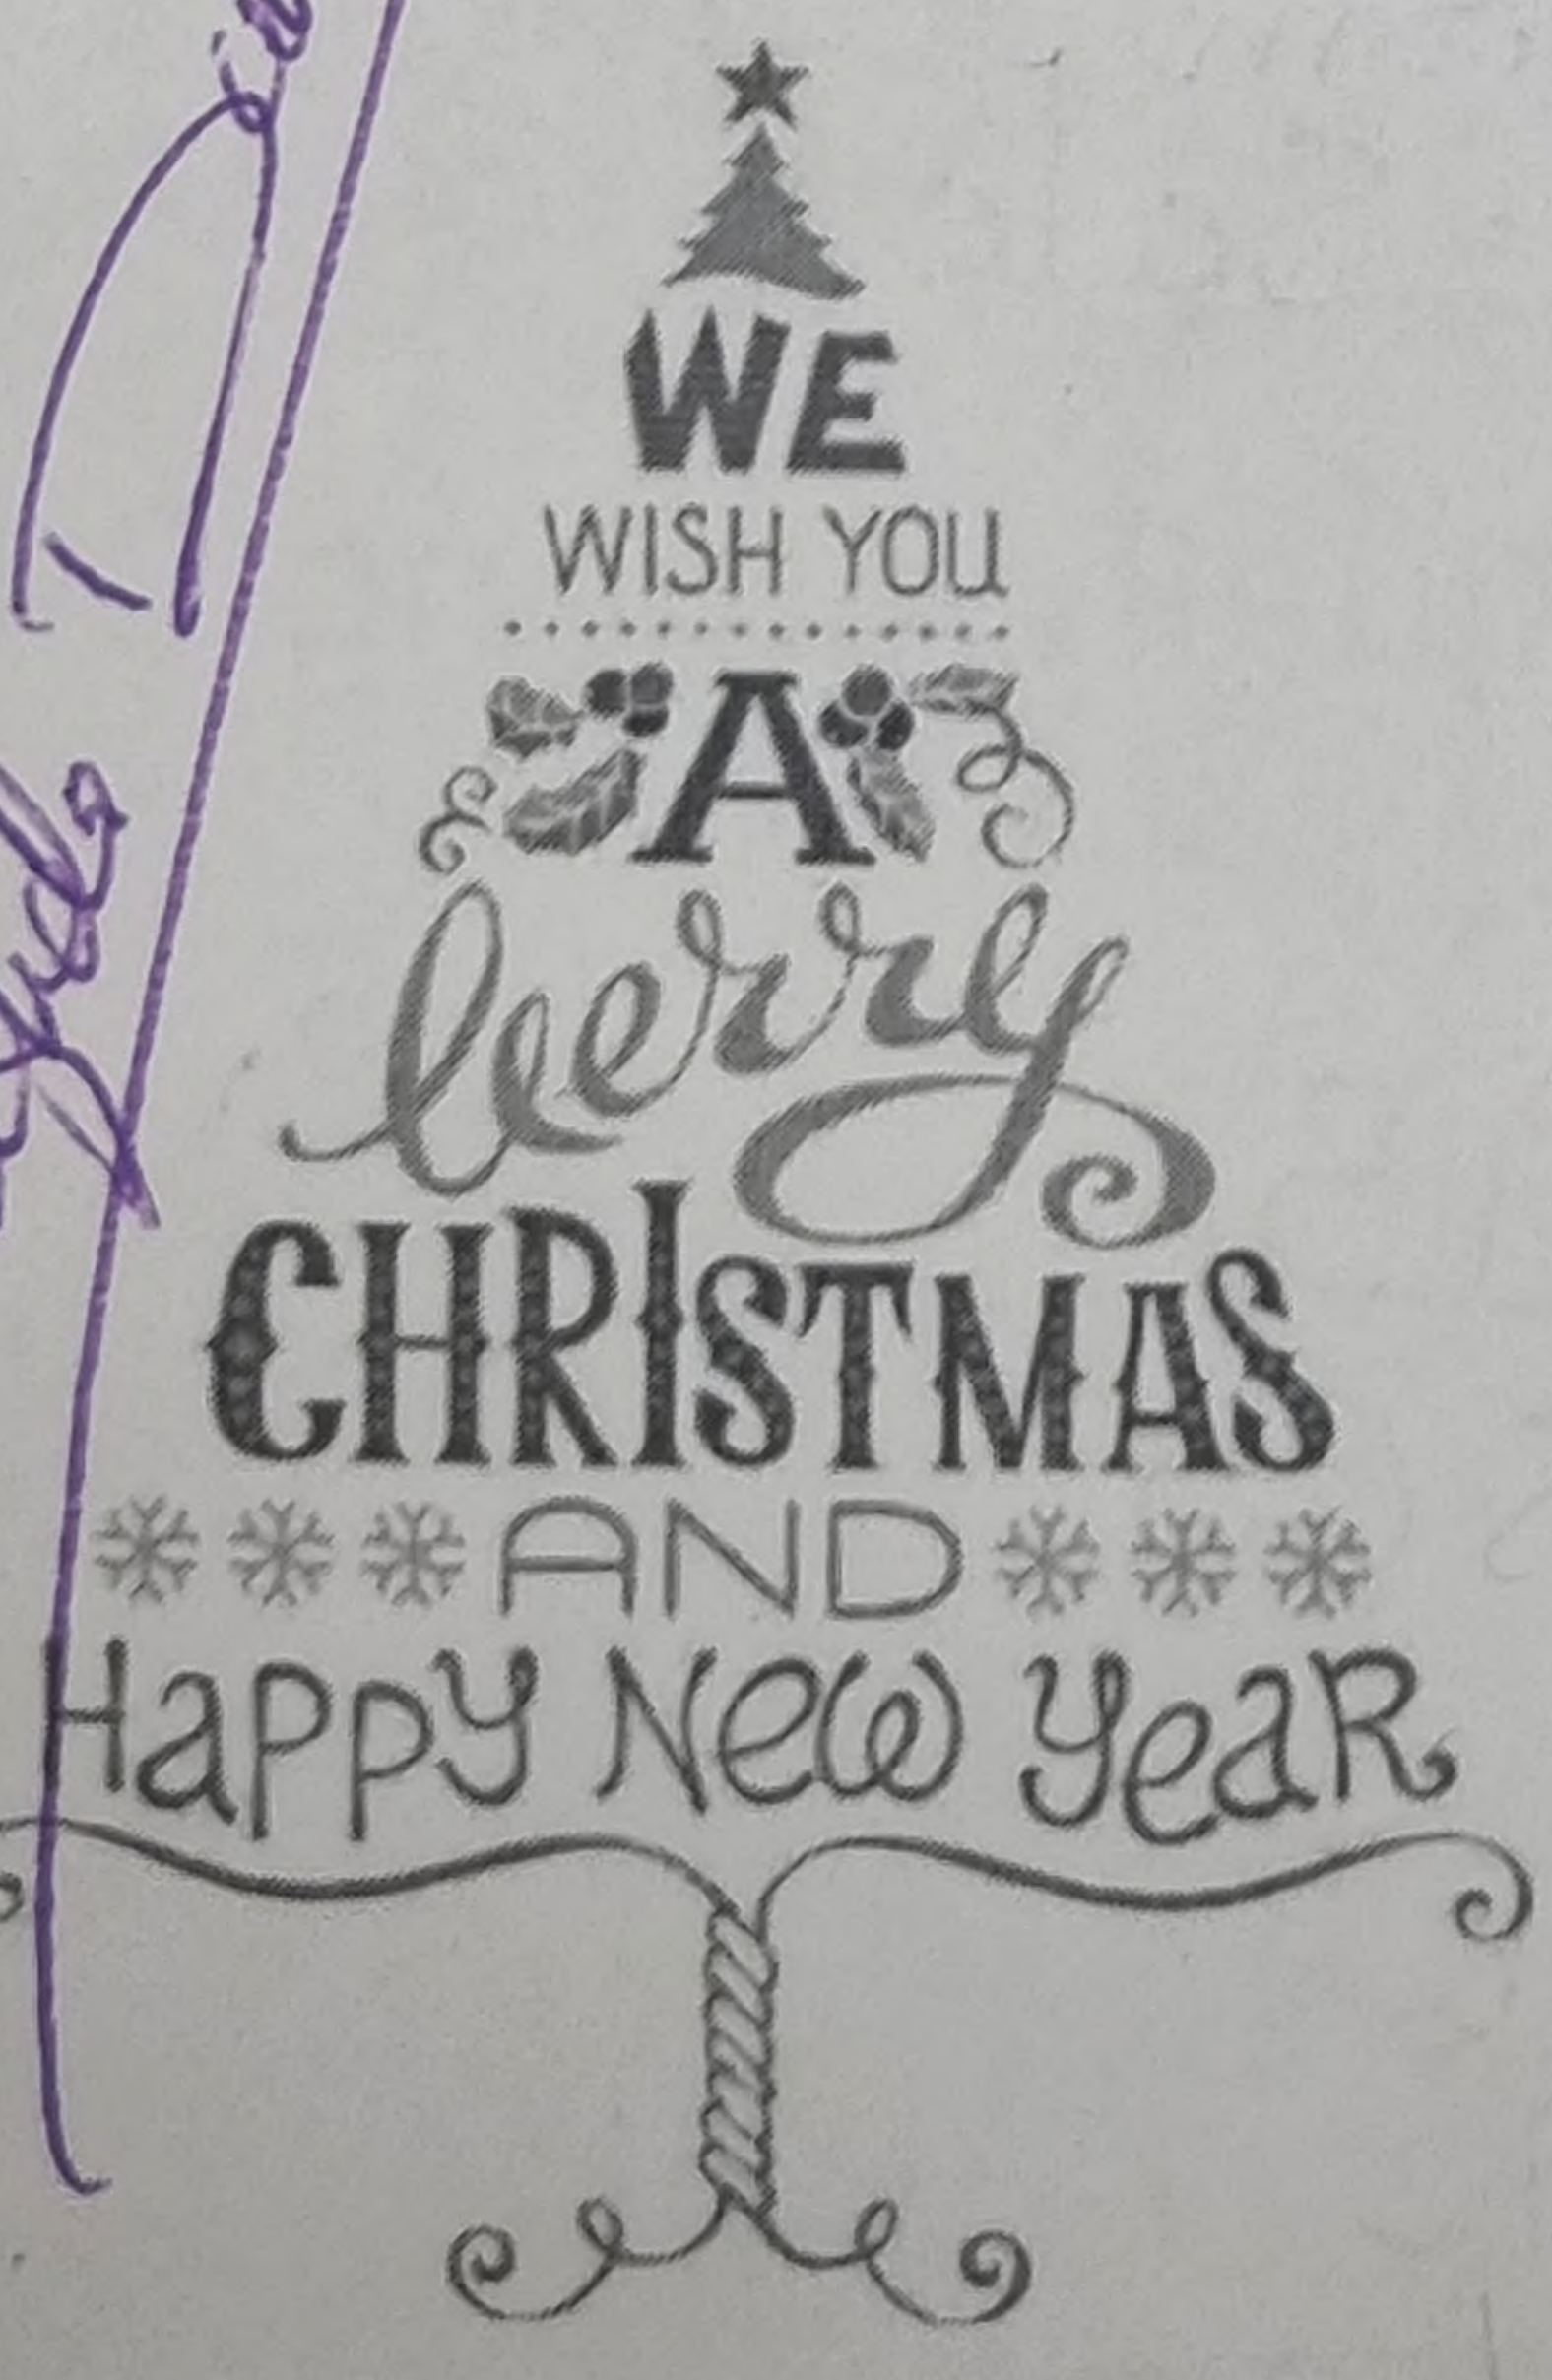 WE
WISH YOU
A
berry
CHRISTMAS
AND
Happy New Year